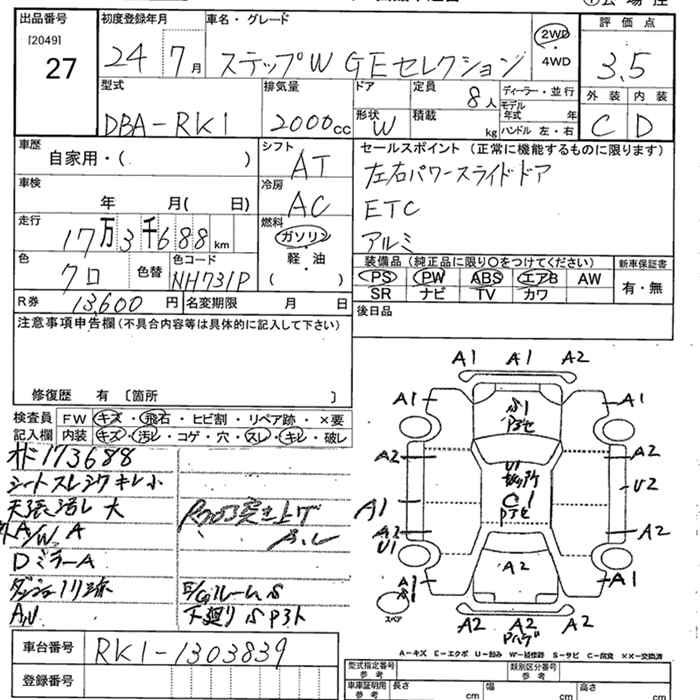 出品番号 初度登録年月 車名・グレード 評価点
[2049]
27 24 7月 ステップW GEセレクション 2WD・4WD 3.5
型式 排気量 ドア 定員 ディーラー・並行 外装 内装
DBA-RK1 2000cc 形状 W 8人 積載 kg モデル年式 年 ハンドル 左・右 C D
車歴 自家用・( ) シフト AT セールスポイント (正常に機能するものに限ります)
車検 年 月( 日) 冷房 AC 左右パワースライドドア
ETC
走行 17万3千688km 燃料 ガソリン・軽・油 ( ) アルミ
色 クロ 色替 色コード NH731P 装備品 (純正品に限り〇をつけてください) 新車保証書
PS PW ABS エアB AW 有・無
SR ナビ TV カワ
R券 13,600円 名変期限 月 日 後日品
注意事項申告欄(不具合内容等は具体的に記入して下さい)
修復歴 有 〔箇所 〕
検査員 FW キズ・飛石・ヒビ割・リペア跡・×要
記入欄 内装 キズ・汚レ・コゲ・穴・スレ・キレ・破レ
173688
シートスレ シワ キレ小
天張汚レ 大
外A/W A
突き上げ
DミラーA
E/GルームS
下廻りS
A1 A1 A2
A1 A1
S1
A2 A2
U1
U2
C1
A1
A2 A2
U1
A2
A1 A1
A2 A2 A2
スペア
A-キズ E-エクボ U-凹み W-補修跡 S-サビ C-腐食 XX-交換済
車台番号 RK1-1303839
登録番号
型式指定番号 参考 類別区分番号 参考
車庫証明用 参考 長さ cm 幅 cm 高さ cm